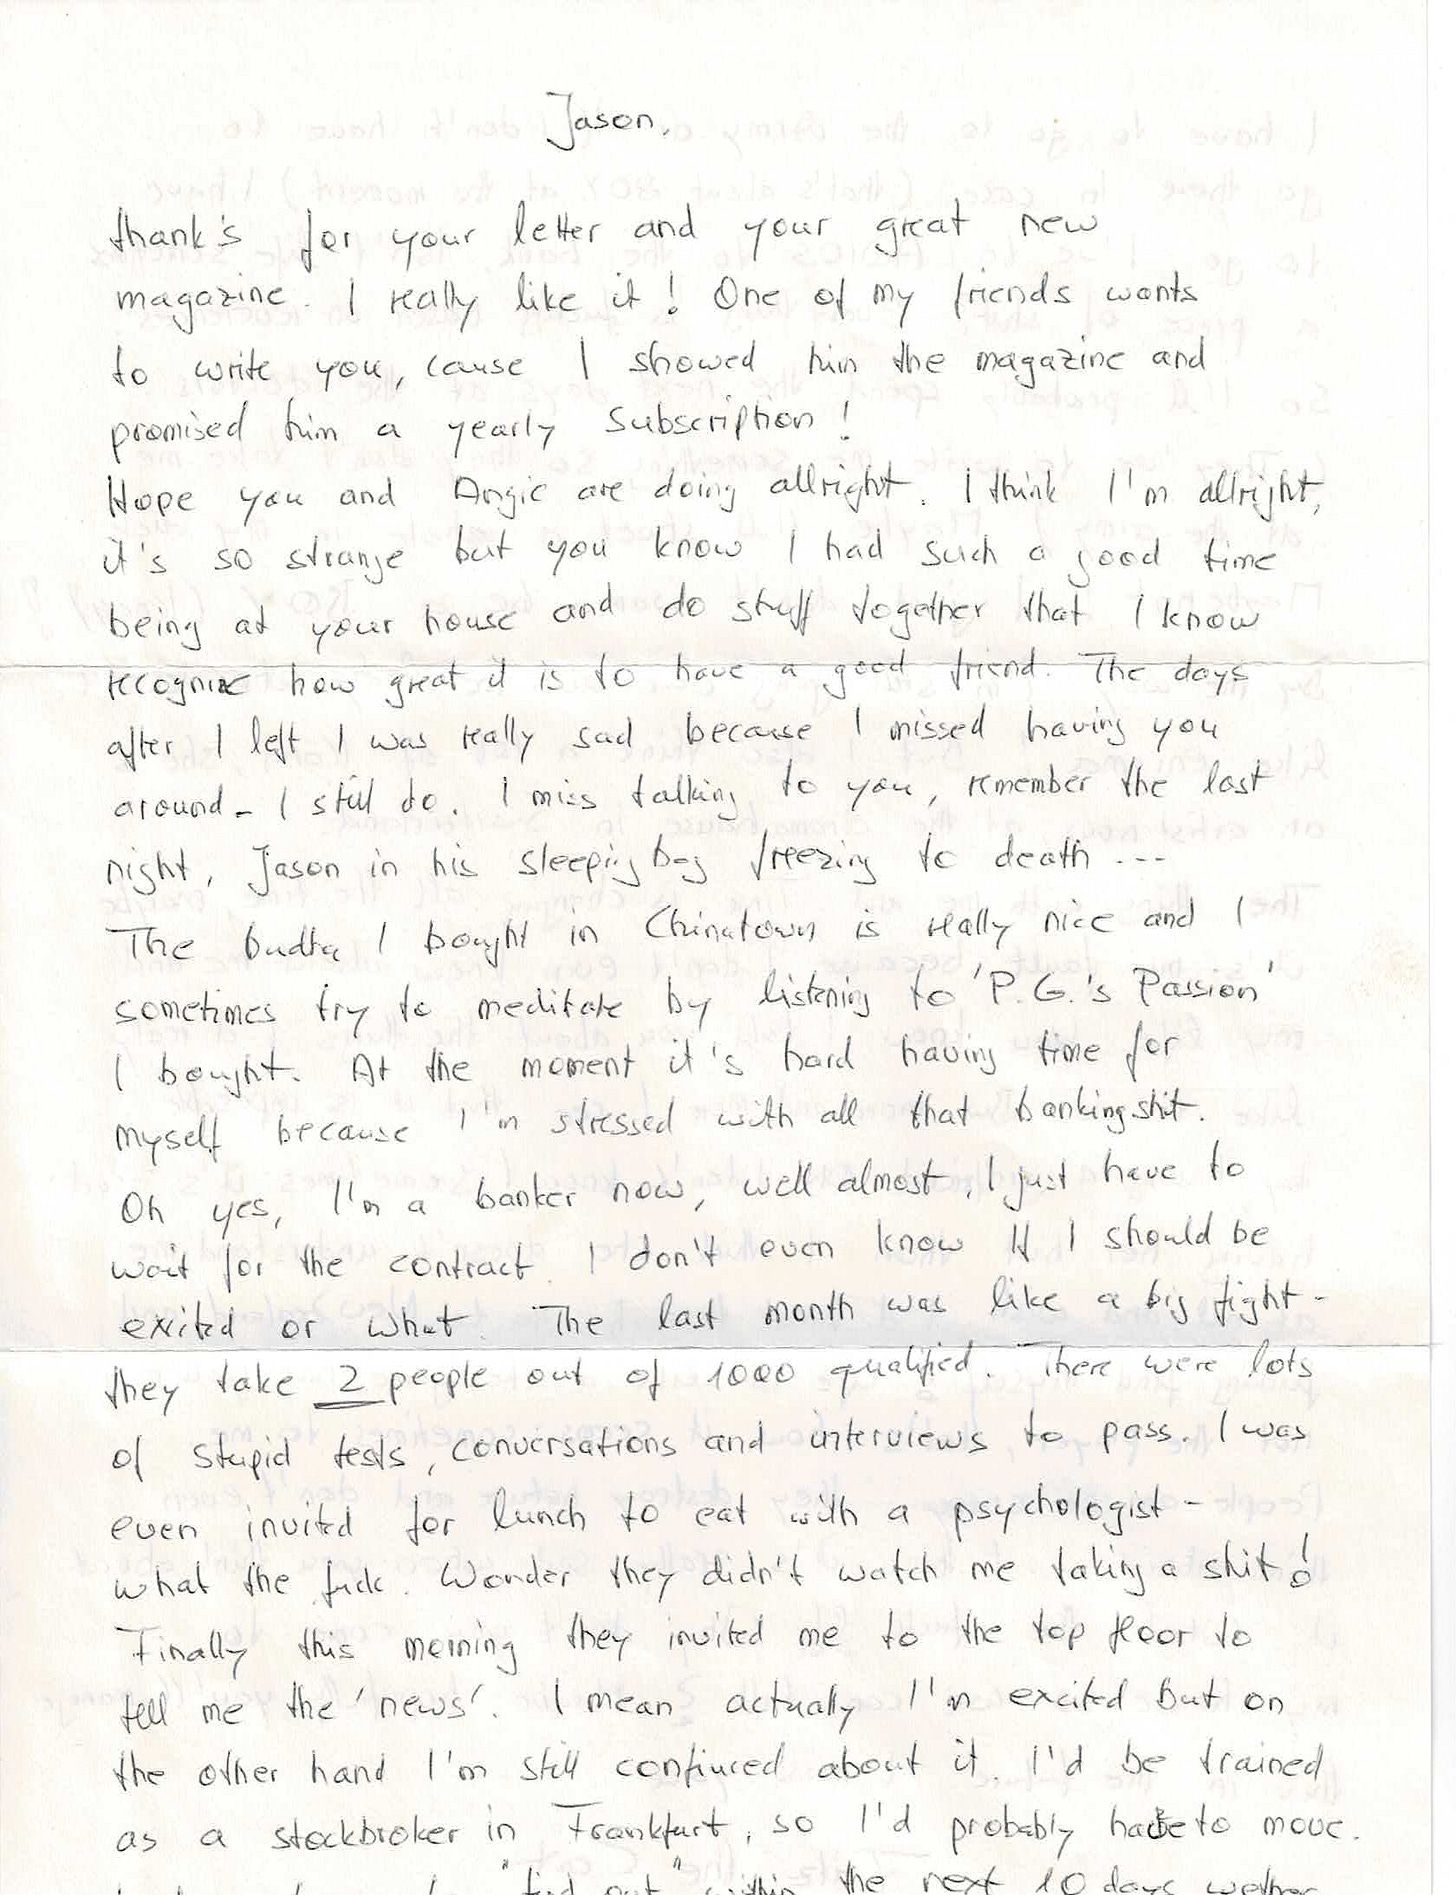 Jason,
thank's for your letter and your great new
magazine. I really like it! One of my friends wants
to write you, cause I showed him the magazine and
promised him a yearly subscription!
Hope you and Angie are doing allright. I think I'm allright,
it's so strange but you know I had such a good time
being at your house and do stuff together that I know
recognize how great it is to have a good friend. The days
after I left I was really sad because I missed having you
around - I still do. I miss talking to you, remember the last
night, Jason in his sleeping bag freezing to death ---
The budha I bought in Chinatown is really nice and I
sometimes try to meditate by listening to 'P.G.'s Passion'
I bought. At the moment it's hard having time for
myself because I'm stressed with all that bankingshit.
Oh yes, I'm a banker now, well almost, I just have to
wait for the contract. I don't even know If I should be
exited or what. The last month was like a big fight -
they take 2 people out of 1000 qualified. There were lots
of stupid tests, conversations and interviews to pass. I was
even invited for lunch to eat with a psychologist -
what the fuck. Wonder they didn't watch me taking a shit!
Finally this morning they invited me to the top floor to
tell me the 'news'. I mean actually I'm excited but on
the other hand I'm still confiuced about it. I'd be trained
as a stockbroker in Frankfurt, so I'd probably have to move.
"find out" within the next 10 days wether